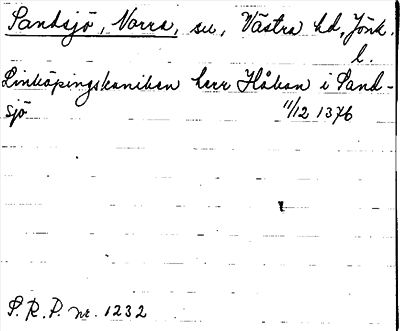 Sandsjö, Norra, su, Västra hd, Jönk.
l.
Linköpingskaniken herr Håkan i Sand-
sjö 11/12 1376
S.R.P. nr. 1232